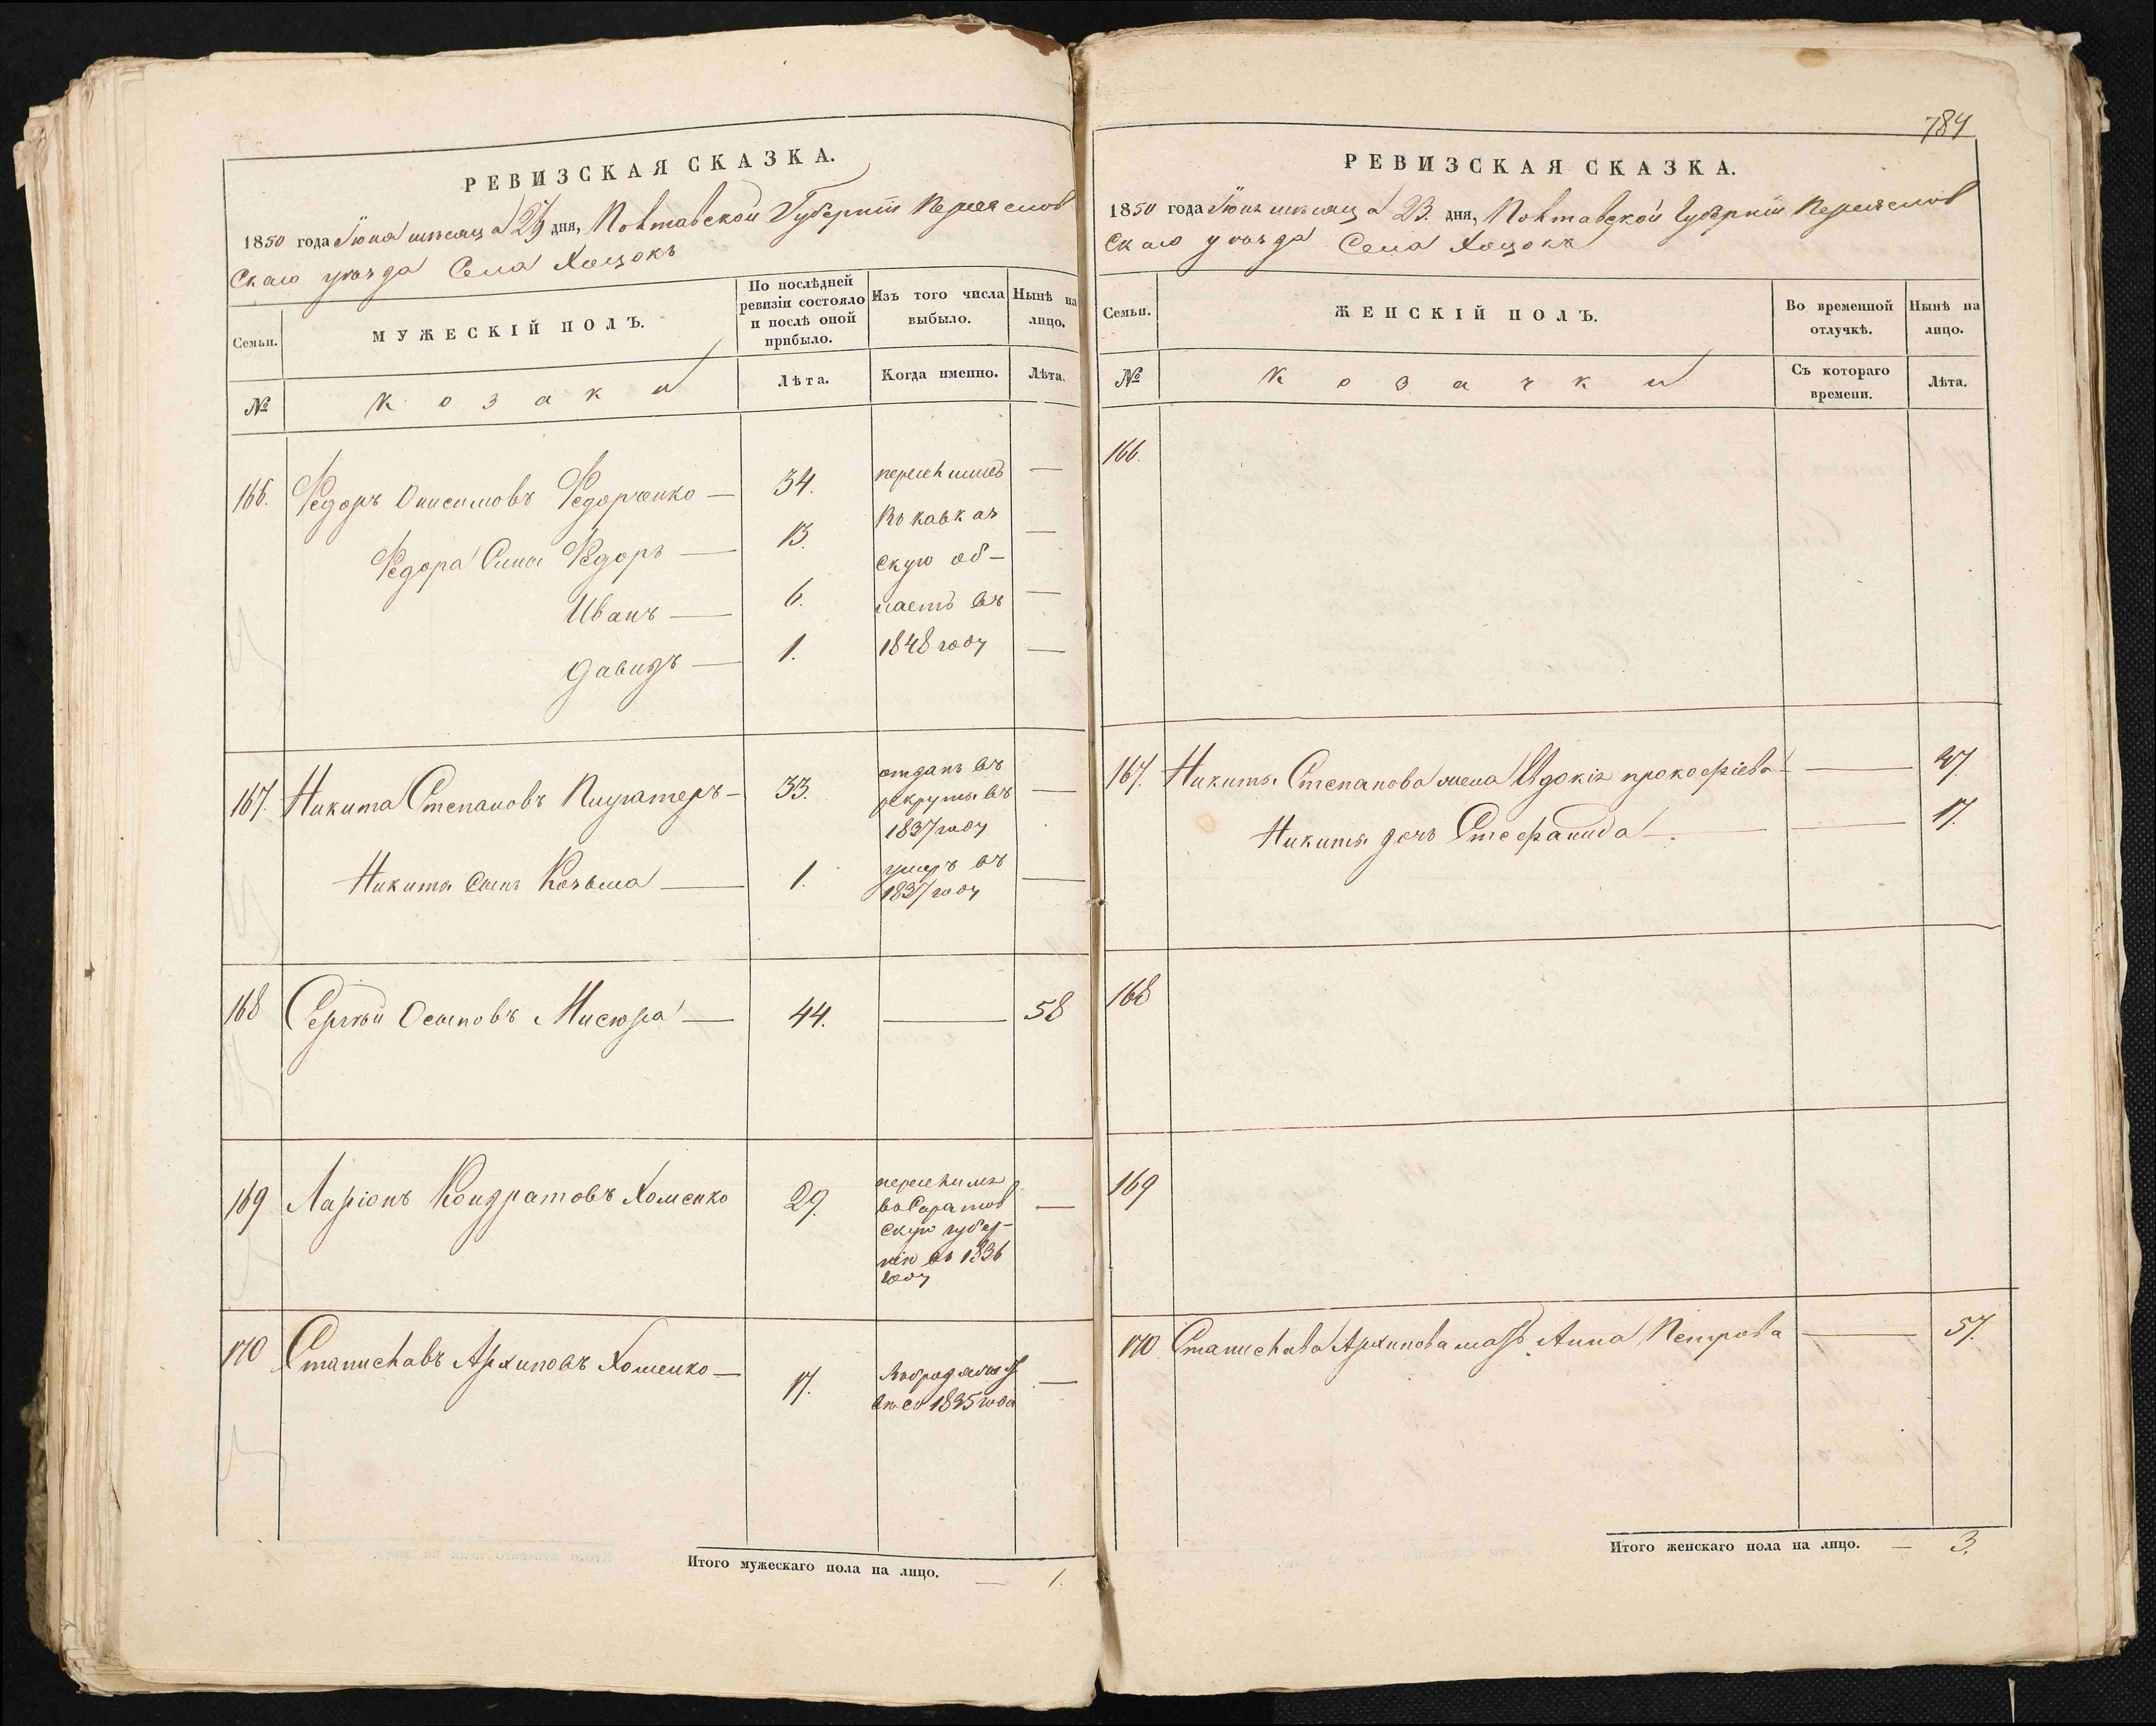 РЕВИЗСКАЯ СКАЗКА.
1850 года Іюня мѣсяца 23 дня, Полтавской Губерніи Переяслов
скаго уѣзда Села Хоцокъ
Семьи.
МУЖЕСКІЙ ПОЛЪ.
По послѣдней ревизіи состояло и послѣ оной прибыло.
Изъ того числа выбыло.
Нынѣ на лицо.
№
Козаки
Лѣта.
Когда именно.
Лѣта.
166. Федоръ Онисимовъ Федорченко — 34. переселился —
Федора Сынъ Федоръ — 13. въ кавказ —
скую об-
Иванъ — 6. ласть въ —
Давидъ — 1. 1848 году —
167. Никита Степановъ — 33. отданъ въ —
рекруты въ
1837 году
Никиты Сынъ Козьма — 1. умеръ въ —
1837 году
168 Сергѣй Осиповъ Мисюра — 44. — 58
169 Ларіонъ Кондратовъ Хоменко 29.
въ Саратов —
скую губер-
нію въ 1836
году
170 Станиславъ Архиповъ Хоменко — 17. —
1835 года
Итого мужескаго пола на лицо. — 1.
784
РЕВИЗСКАЯ СКАЗКА.
1850 года Іюня мѣсяца 23. дня, Полтавской Губерніи Переяслов
скаго уѣзда Села Хоцокъ
Семьи.
ЖЕНСКІЙ ПОЛЪ.
Во временной отлучкѣ.
Нынѣ на лицо.
№
Козачки
Съ котораго времени.
Лѣта.
166.
167. Никиты Степанова жена Евдокія прокофіева — 47.
Никиты дочь Стефанида — — 17.
168
169
170 Станислава Архипова мать Анна Петрова — 57.
Итого женскаго пола на лицо. — 3.